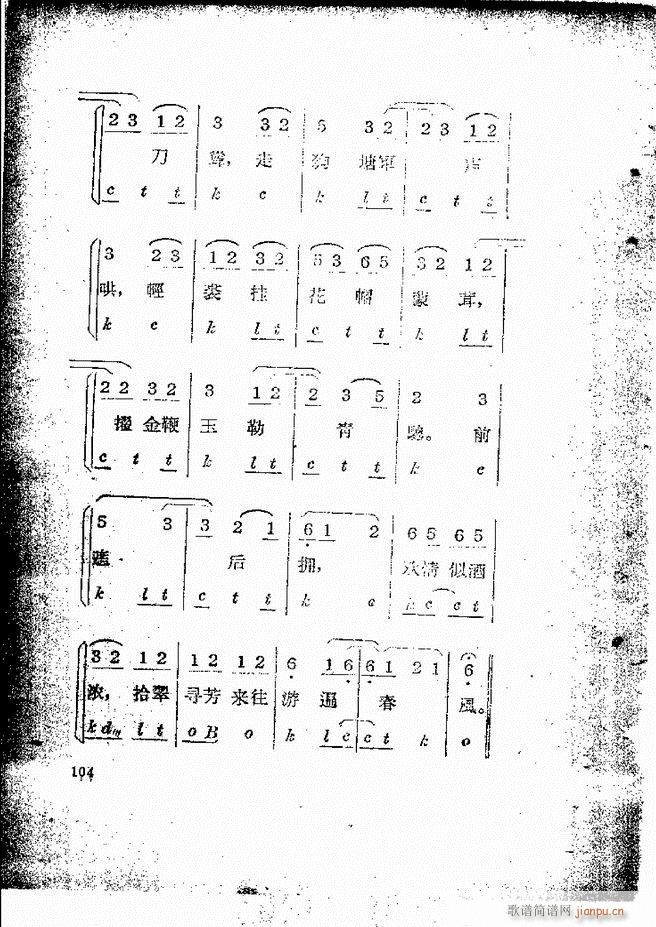 2 3 1 2 3 3 2 5 3 2 2 3 1 2
刀 走 狗 塘
c t t k c k l t c t t
3 2 3 1 2 3 2 5 3 6 5 3 2 1 2
哄, 輕 裘 挂 花 帽 蒙 茸,
k c k l t c t t k l t
2 2 3 2 3 1 2 2 3 5 2 3
擺 金鞭 玉 勒 青 驄。 前
c t t k l t c t t k c
5 3 3 2 1 6 1 2 6 5 6 5
遮 后 拥, 欢情 似酒
k l t c t t k c k c c t
3 2 1 2 1 2 1 2 6 1 6 6 1 2 1 6
浓, 拾翠 寻芳 来往 游 遍 春 風。
k d l t o B o k l c c t k o
104
歌谱简谱网 jianpu.cn